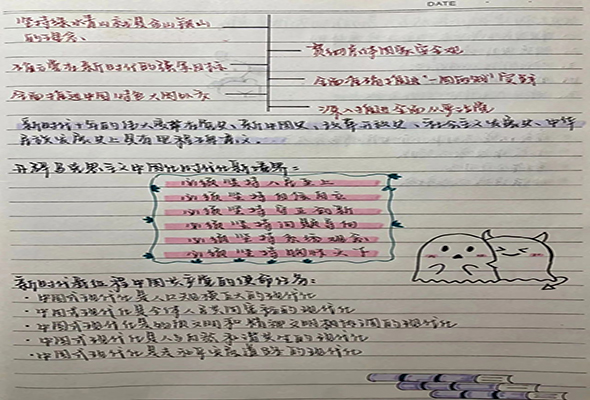 DATE
坚持绿水青山就是金山银山
的理念、
贯彻总体国家安全观
确立党在新时代的强军目标
全面准确推进"一国两制"实践
全面推进中国特色大国外交
深入推进全面从严治党
新时代十年的伟大变革在党史、新中国史、改革开放史、社会主义发展史、中华
民族发展史上具有里程碑意义。
开辟马克思主义中国化时代化新境界：
必须坚持人民至上
必须坚持自信自立
必须坚持守正创新
必须坚持问题导向
必须坚持系统观念
必须坚持胸怀天下
新时代新征程中国共产党的使命任务：
·中国式现代化是人口规模巨大的现代化
·中国式现代化是全体人民共同富裕的现代化
·中国式现代化是物质文明和精神文明相协调的现代化
·中国式现代化是人与自然和谐共生的现代化
·中国式现代化是走和平发展道路的现代化